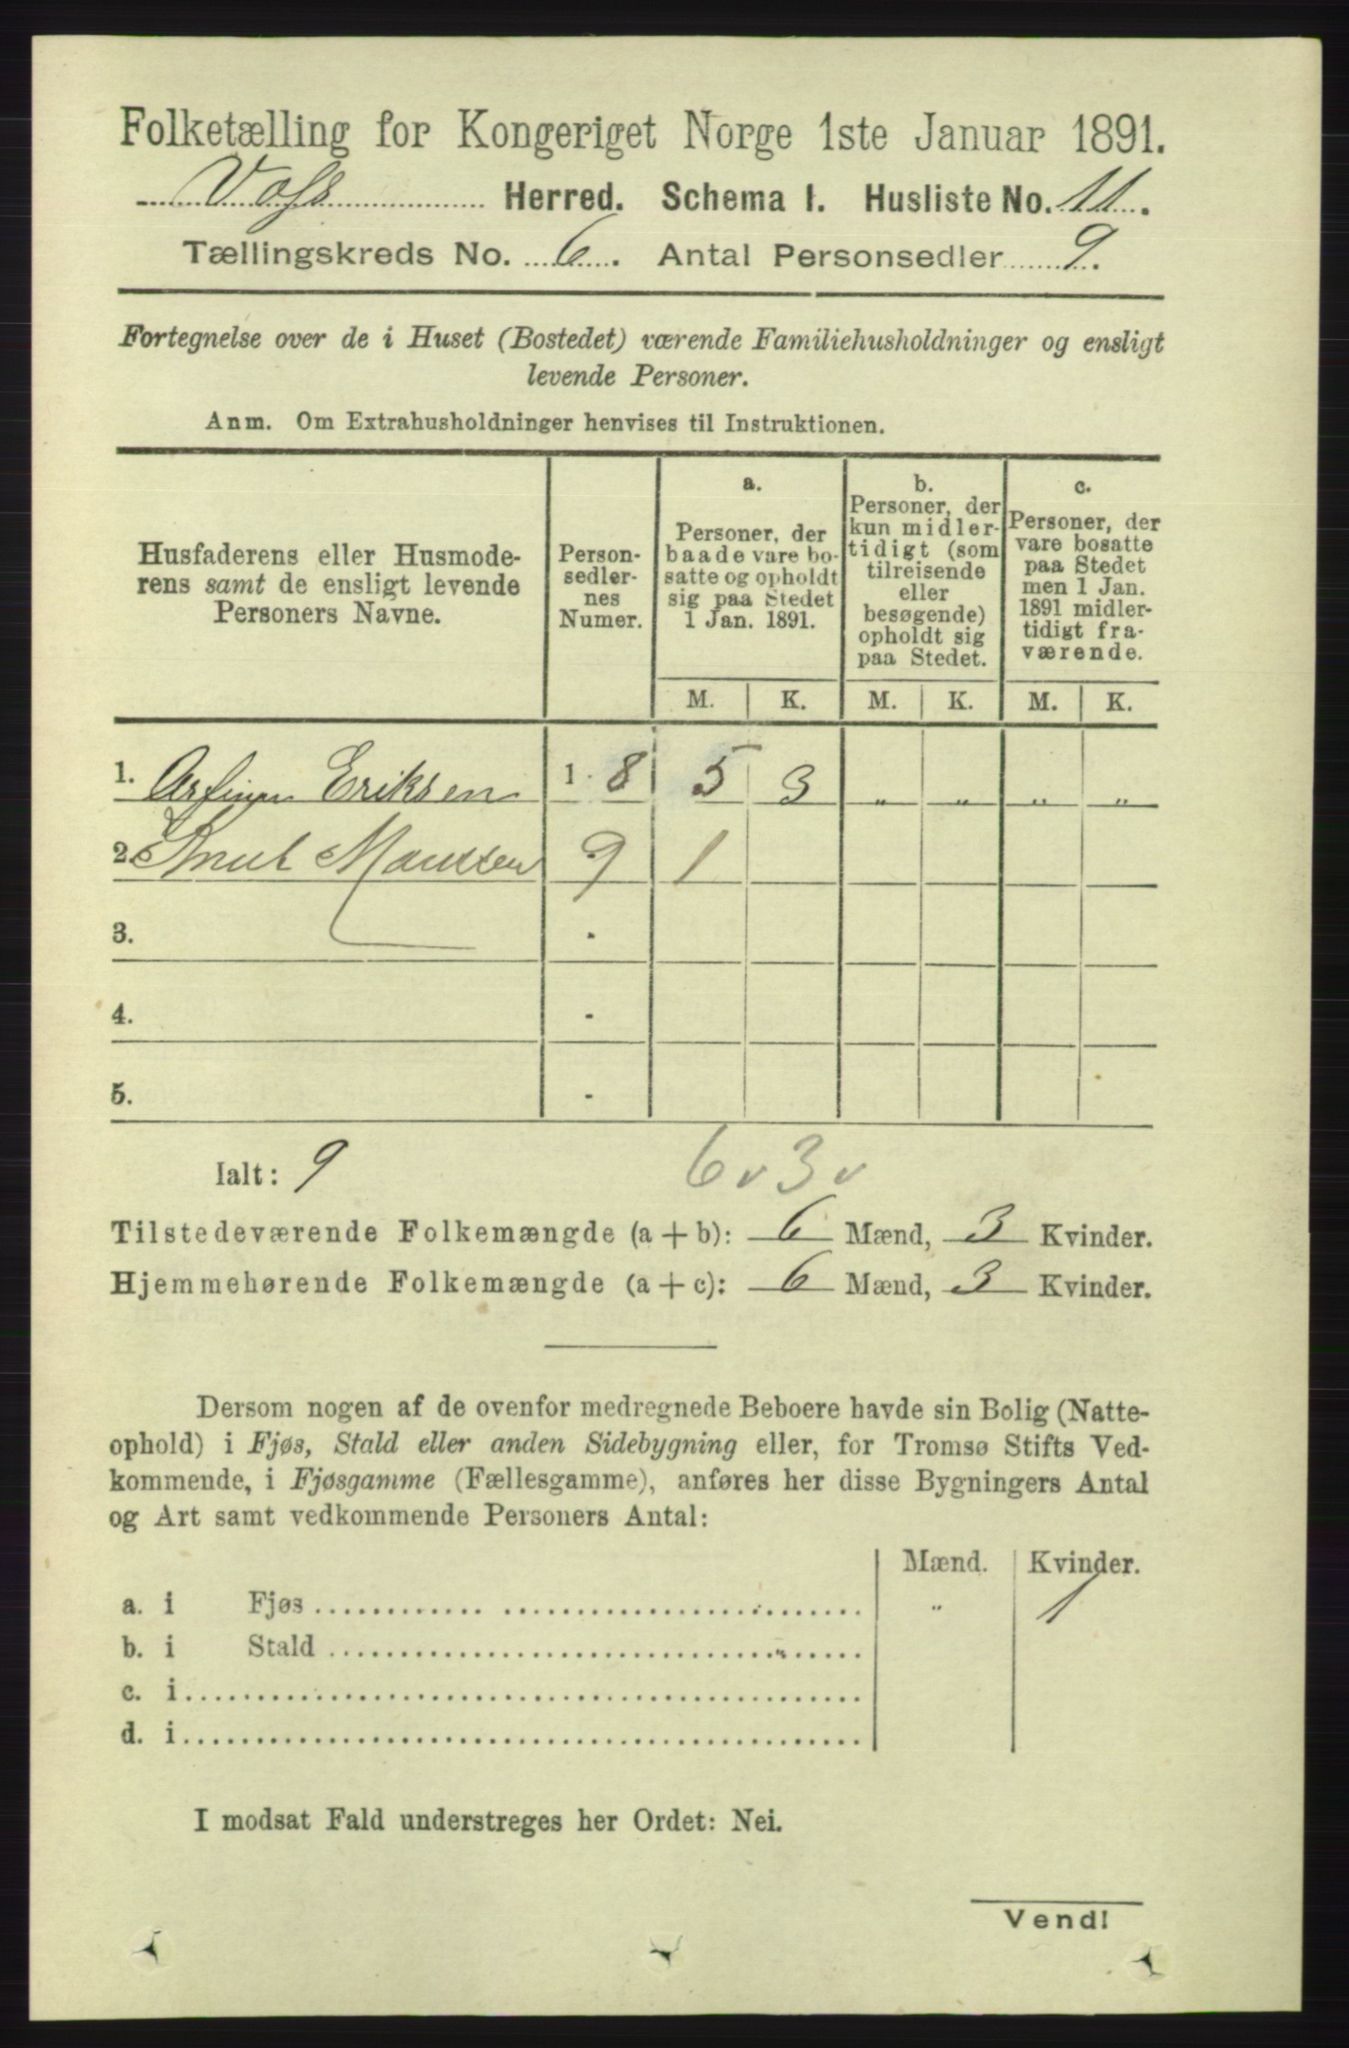 Folketælling for Kongeriget Norge 1ste Januar 1891.
Voss Herred. Schema I. Husliste No. 11.
Tællingskreds No. 6. Antal Personsedler 9.
Fortegnelse over de i Huset (Bostedet) værende Familiehusholdninger og ensligt
levende Personer.
Anm. Om Extrahusholdninger henvises til Instruktionen.
Husfaderens eller Husmode-
rens samt de ensligt levende
Personers Navne.
Person-
sedler-
nes
Numer.
a.
Personer, der
baade vare bo-
satte og opholdt
sig paa Stedet
1 Jan. 1891.
b.
Personer, der
kun midler-
tidigt (som
tilreisende
eller
besøgende)
opholdt sig
paa Stedet.
c.
Personer, der
vare bosatte
paa Stedet
men 1 Jan.
1891 midler-
tidigt fra-
værende.
M. K. M. K. M. K.
1. Arfinn Eriksen 1 - 8 5 3 „ „ „ „
2. Knut 9 1
3. -
4. -
5. -
Ialt: 9 6 v 3 v
Tilstedeværende Folkemængde (a + b): 6 Mænd, 3 Kvinder.
Hjemmehørende Folkemængde (a + c): 6 Mænd, 3 Kvinder.
Dersom nogen af de ovenfor medregnede Beboere havde sin Bolig (Natte-
ophold) i Fjøs, Stald eller anden Sidebygning eller, for Tromsø Stifts Ved-
kommende, i Fjøsgamme (Fællesgamme), anføres her disse Bygningers Antal
og Art samt vedkommende Personers Antal:
Mænd. Kvinder.
a. i Fjøs „ 1
b. i Stald „
c. i
d. i
I modsat Fald understreges her Ordet: Nei.
Vend!